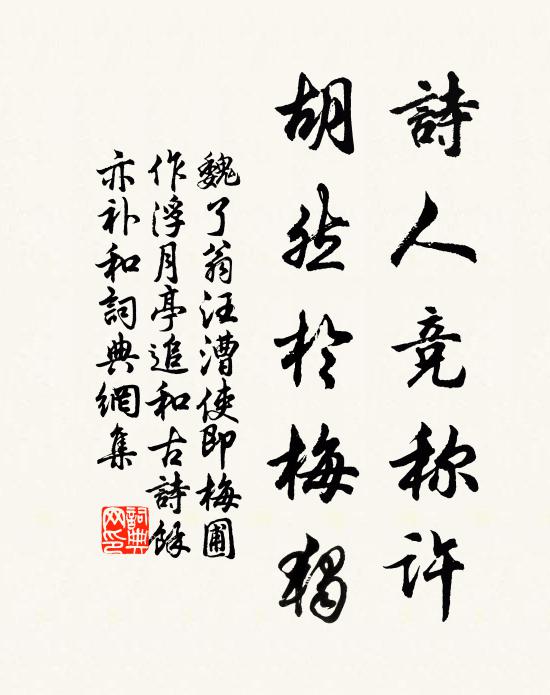 詩人竞称許
胡然於梅獨
魏了翁汪漕使即梅圃
作浮月亭追和古詩餘
亦补和詞典網集
詞典网印